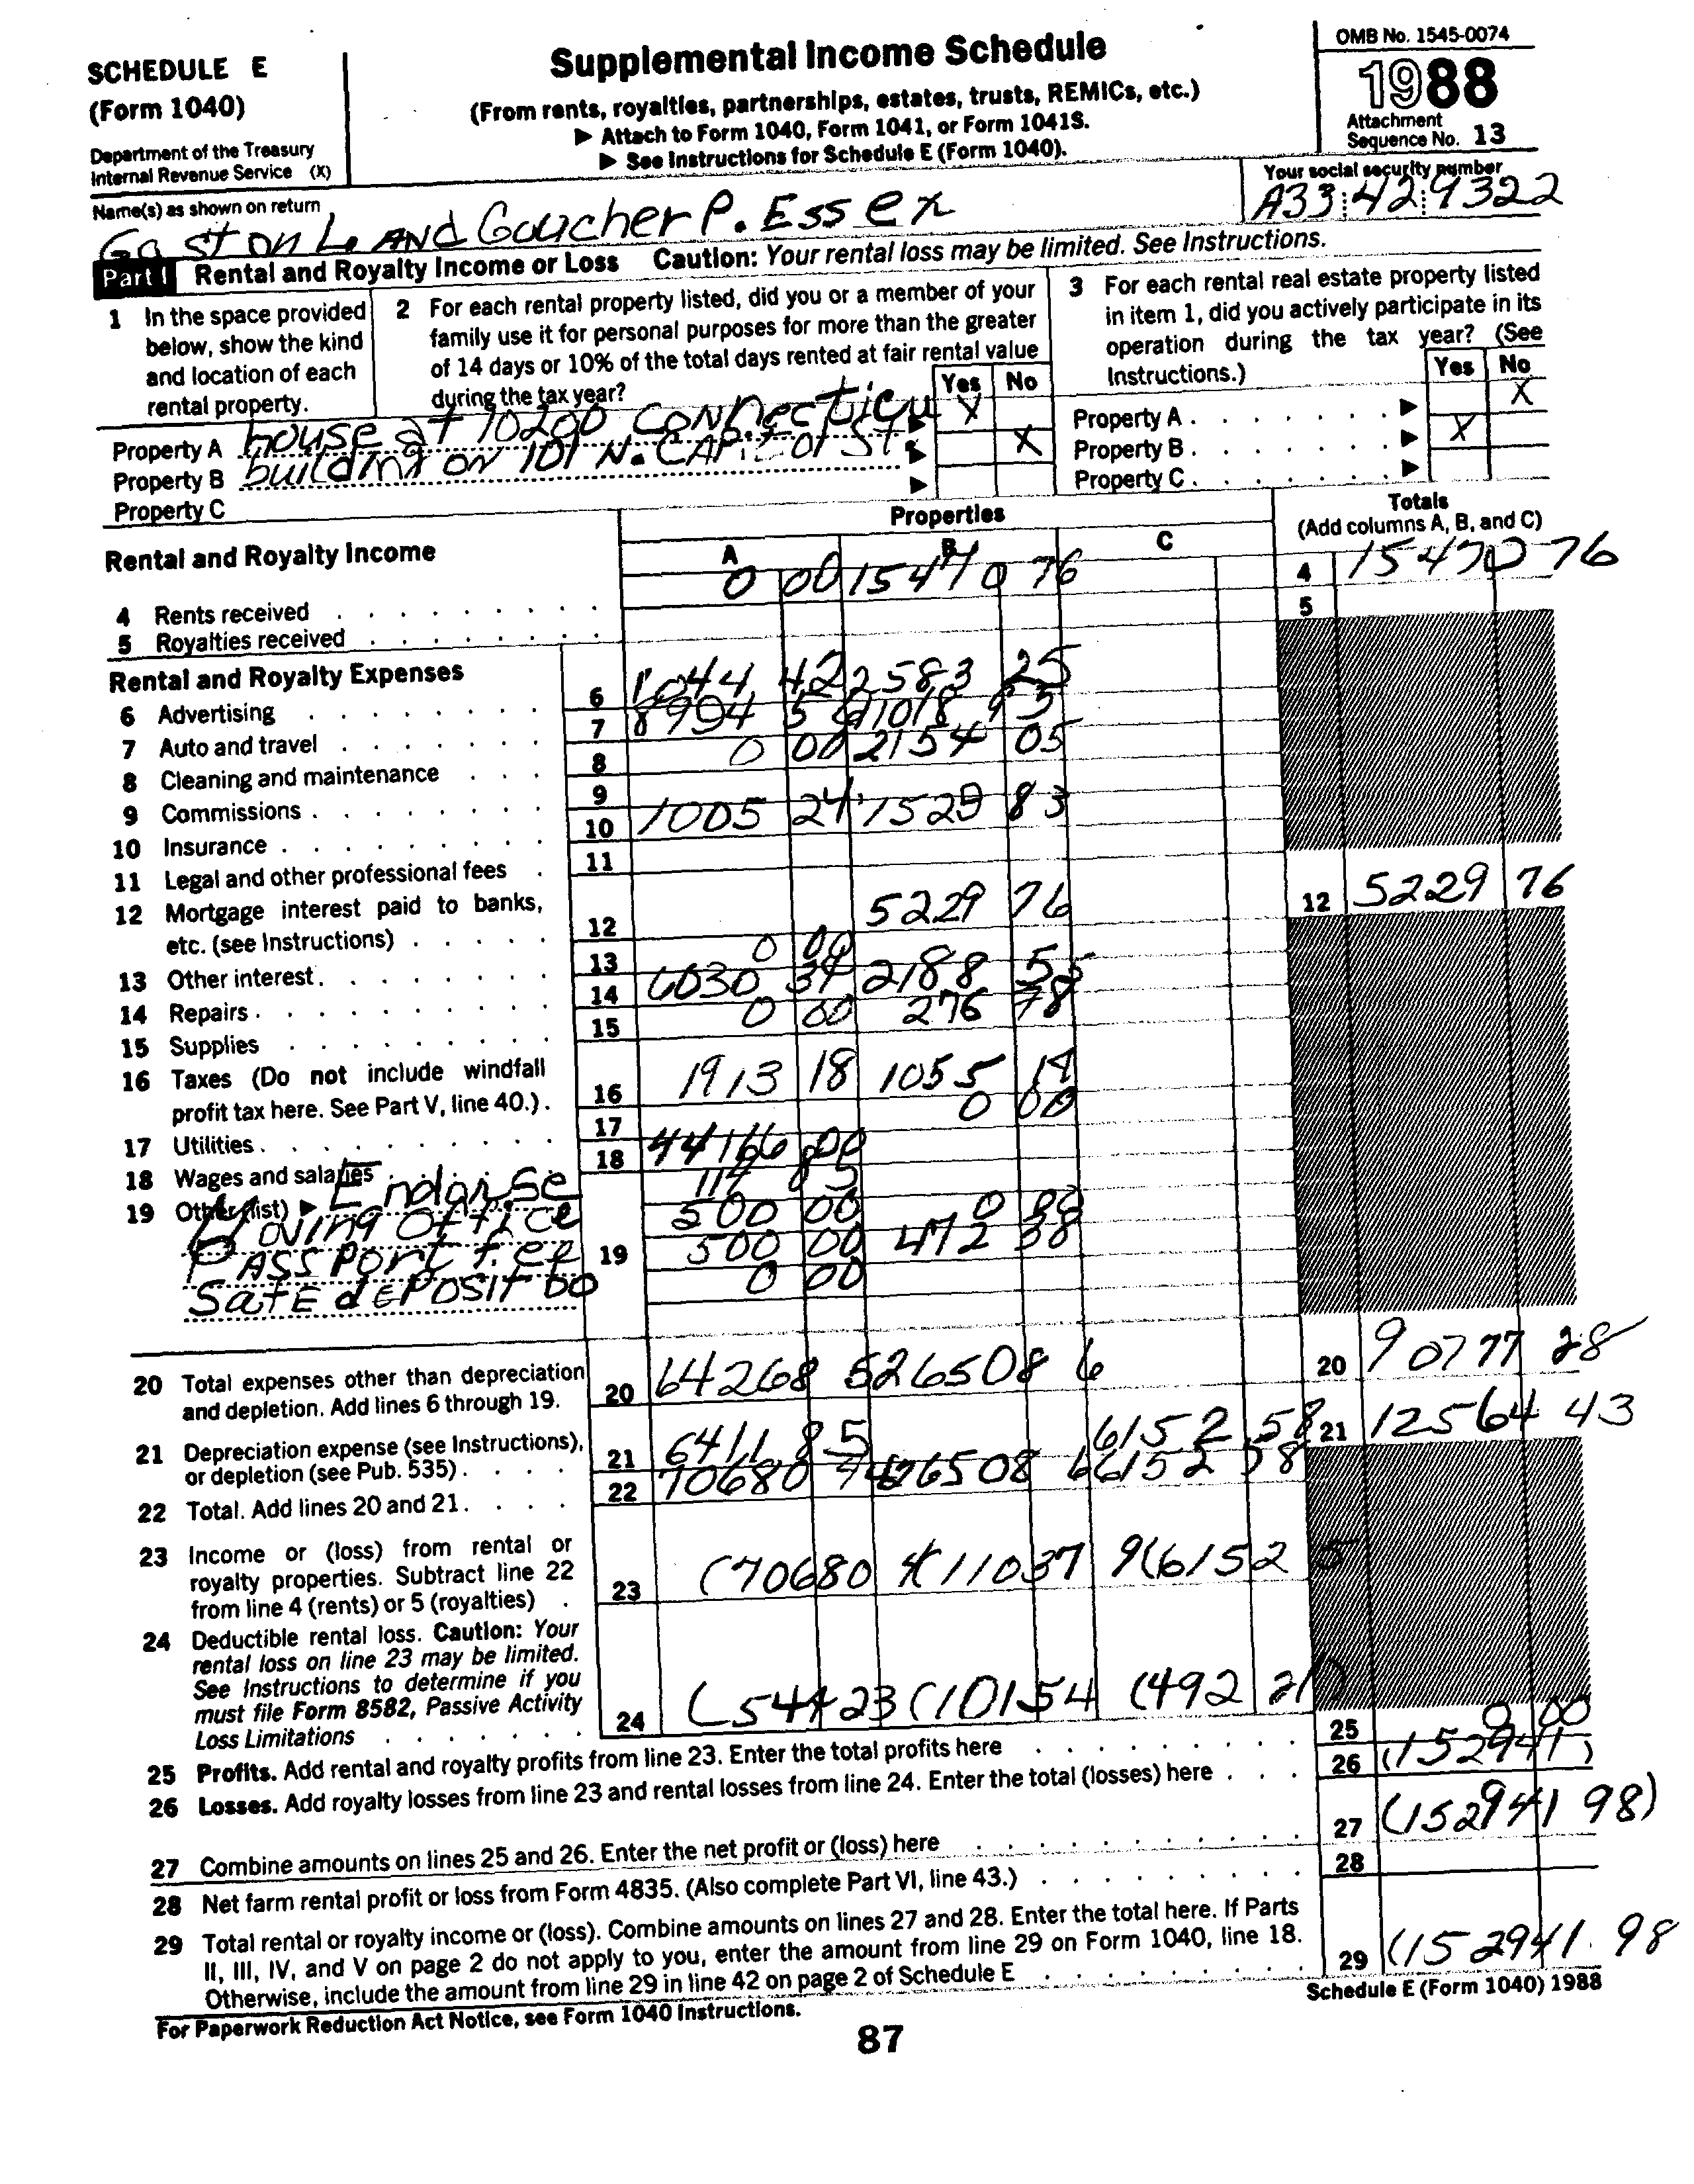 SCHEDULE E
(Form 1040)
Department of the Treasury
Internal Revenue Service (X)
Supplemental Income Schedule
(From rents, royalties, partnerships, estates, trusts, REMICs, etc.)
▶ Attach to Form 1040, Form 1041, or Form 1041S.
▶ See Instructions for Schedule E (Form 1040).
OMB No. 1545-0074
1988
Attachment
Sequence No. 13
Name(s) as shown on return
Gaston L. AND Goucher P. Essex
Your social security number
A33 42 9322
Part I Rental and Royalty Income or Loss Caution: Your rental loss may be limited. See Instructions.
1 In the space provided
below, show the kind
and location of each
rental property.
2 For each rental property listed, did you or a member of your
family use it for personal purposes for more than the greater
of 14 days or 10% of the total days rented at fair rental value
during the tax year?
Yes No
3 For each rental real estate property listed
in item 1, did you actively participate in its
operation during the tax year? (See
Instructions.)
Yes No
Property A house at 10200 CONNecticu ▶ X
Property B building on 101 N. CAPitol St ▶ X
Property C ▶
Property A . . . . . . . ▶ X
Property B . . . . . . . ▶ X
Property C . . . . . . . ▶
Rental and Royalty Income
Properties
A B C
Totals
(Add columns A, B, and C)
4 Rents received 0 00 15470 76 4 15470 76
5 Royalties received 5
Rental and Royalty Expenses
6 Advertising 6 1044 42 2583 25
7 Auto and travel 7 8994 5 11018 95
8 Cleaning and maintenance 8 0 00 2154 05
9 Commissions 9
10 Insurance 10 1005 24 1529 83
11 Legal and other professional fees 11
12 Mortgage interest paid to banks,
etc. (see Instructions) 12 5229 76 12 5229 76
13 Other interest 13 0 00
14 Repairs 14 6030 34 2188 55
15 Supplies 15 0 00 276 78
16 Taxes (Do not include windfall
profit tax here. See Part V, line 40.) 16 1913 18 1055 14
17 Utilities 17 0 00
18 Wages and salaries 18 44166 00
19 Other (list) ▶ Endorse 114 85
Moving Office 500 00 0 00
PASSPort fee 19 500 00 472 38
Safe dePosit bo 0 00
20 Total expenses other than depreciation
and depletion. Add lines 6 through 19. 20 64268 5 26508 6 20 90777 28
21 Depreciation expense (see Instructions),
or depletion (see Pub. 535) 21 6411 85 6152 58 21 12564 43
22 Total. Add lines 20 and 21. 22 70680 4 26508 6 6152 58
23 Income or (loss) from rental or
royalty properties. Subtract line 22
from line 4 (rents) or 5 (royalties) 23 (70680 4 (11037 9 (6152 5
24 Deductible rental loss. Caution: Your
rental loss on line 23 may be limited.
See Instructions to determine if you
must file Form 8582, Passive Activity
Loss Limitations 24 (54423 (10154 (492 21)
25 Profits. Add rental and royalty profits from line 23. Enter the total profits here 25 0 00
26 Losses. Add royalty losses from line 23 and rental losses from line 24. Enter the total (losses) here 26 (152941)
27 Combine amounts on lines 25 and 26. Enter the net profit or (loss) here 27 (152941 98)
28 Net farm rental profit or loss from Form 4835. (Also complete Part VI, line 43.) 28
29 Total rental or royalty income or (loss). Combine amounts on lines 27 and 28. Enter the total here. If Parts
II, III, IV, and V on page 2 do not apply to you, enter the amount from line 29 on Form 1040, line 18.
Otherwise, include the amount from line 29 in line 42 on page 2 of Schedule E 29 (152941.98
For Paperwork Reduction Act Notice, see Form 1040 Instructions.
Schedule E (Form 1040) 1988
87